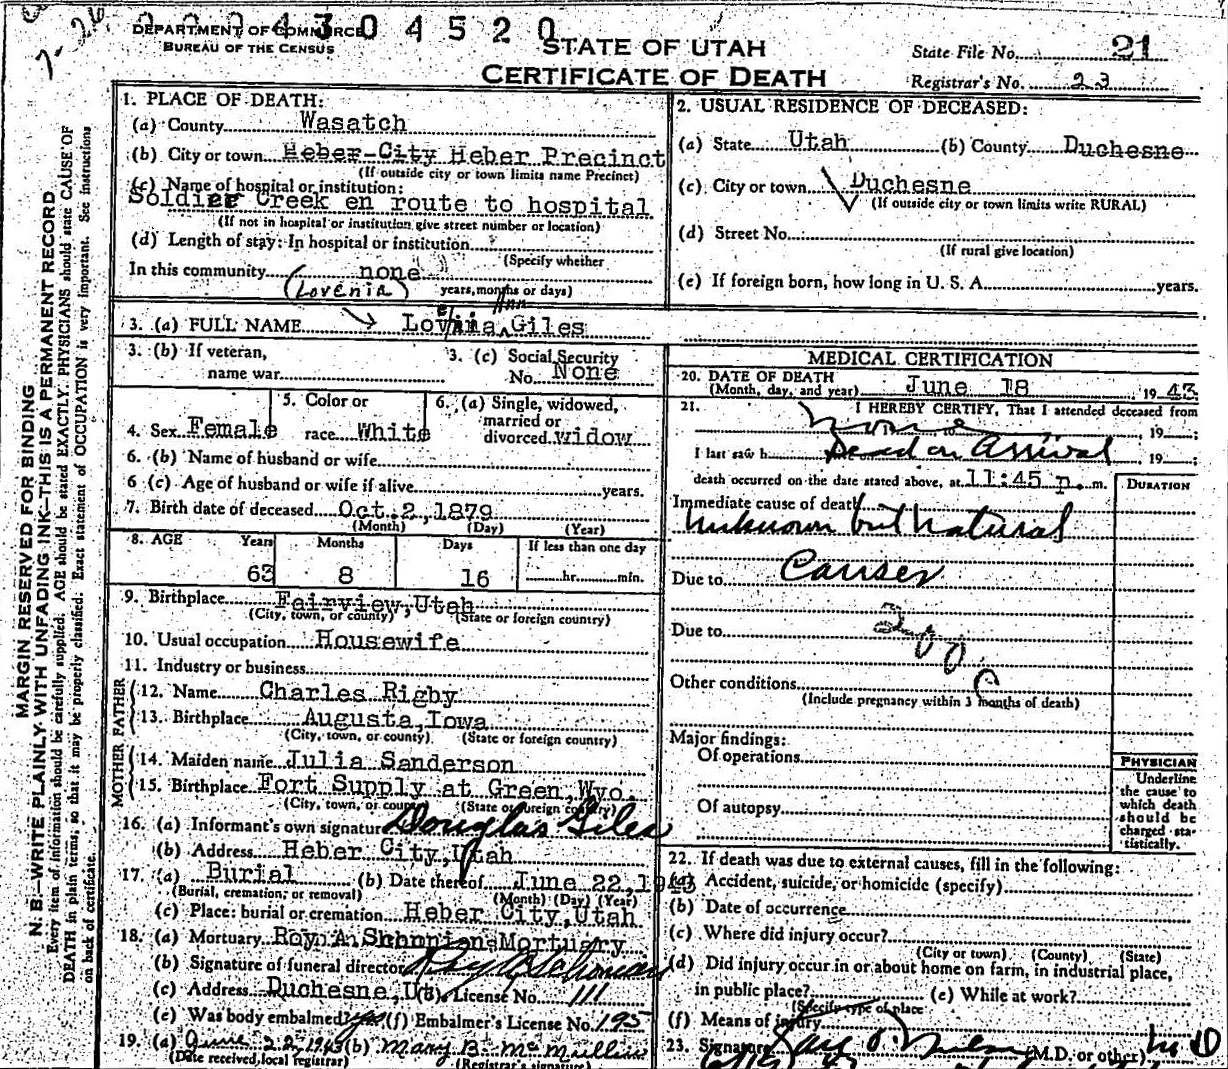 DEPARTMENT OF COMMERCE
BUREAU OF THE CENSUS
4 3 0 4 5 2 0
STATE OF UTAH
CERTIFICATE OF DEATH
State File No. 21
Registrar's No. 23
MARGIN RESERVED FOR BINDING
N. B.—WRITE PLAINLY, WITH UNFADING INK—THIS IS A PERMANENT RECORD
Every item of information should be carefully supplied. AGE should be stated EXACTLY. PHYSICIANS should state CAUSE OF
DEATH in plain terms, so that it may be properly classified. Exact statement of OCCUPATION is very important. See instructions
on back of certificate.
1. PLACE OF DEATH:
(a) County Wasatch
(b) City or town Heber City Heber Precinct
(If outside city or town limits name Precinct)
(c) Name of hospital or institution:
Soldier Creek en route to hospital
(If not in hospital or institution give street number or location)
(d) Length of stay: In hospital or institution
(Specify whether
In this community none
years, months or days)
(Lovenia)
2. USUAL RESIDENCE OF DECEASED:
(a) State Utah (b) County Duchesne
(c) City or town Duchesne
(If outside city or town limits write RURAL)
(d) Street No.
(If rural give location)
(e) If foreign born, how long in U. S. A. years.
Ann
3. (a) FULL NAME Giles
3. (b) If veteran,
name war
3. (c) Social Security
No. None
4. Sex Female
5. Color or
race White
6. (a) Single, widowed,
married or
divorced widow
6. (b) Name of husband or wife
6 (c) Age of husband or wife if alive years.
7. Birth date of deceased Oct. 2, 1879
(Month) (Day) (Year)
8. AGE Years Months Days If less than one day
63 8 16 hr. min.
9. Birthplace Fairview, Utah
(City, town, or county) (State or foreign country)
10. Usual occupation Housewife
11. Industry or business
FATHER
12. Name Charles Rigby
13. Birthplace Augusta, Iowa
(City, town, or county) (State or foreign country)
MOTHER
14. Maiden name Julia Sanderson
15. Birthplace Fort Supply at Green, Wyo.
(City, town, or county) (State or foreign country)
16. (a) Informant's own signature Douglas Giles
(b) Address Heber City, Utah
17. (a) Burial (b) Date thereof June 22, 1943
(Burial, cremation, or removal) (Month) (Day) (Year)
(c) Place: burial or cremation Heber City, Utah
18. (a) Mortuary Mortuary
(b) Signature of funeral director
(c) Address Duchesne, Ut. License No. 111
(e) Was body embalmed? yes (f) Embalmer's License No. 195
19. (a) June 22 1943 (b) Mary B. McMullin
(Date received, local registrar) (Registrar's signature)
MEDICAL CERTIFICATION
20. DATE OF DEATH
(Month, day, and year) June 18 1943
21. I HEREBY CERTIFY, That I attended deceased from
None to 19
I last saw h Dead on Arrival 19
death occurred on the date stated above, at 11:45 p. m.
DURATION
Immediate cause of death
Unknown but natural
Due to Causes
Due to
200
Other conditions
(Include pregnancy within 3 months of death)
Major findings:
Of operations
Of autopsy
PHYSICIAN
Underline
the cause to
which death
should be
charged sta-
tistically.
22. If death was due to external causes, fill in the following:
(a) Accident, suicide, or homicide (specify)
(b) Date of occurrence
(c) Where did injury occur?
(City or town) (County) (State)
(d) Did injury occur in or about home on farm, in industrial place,
in public place? (e) While at work?
(Specify type of place)
(f) Means of injury
23. Signature (M.D. or other) M D